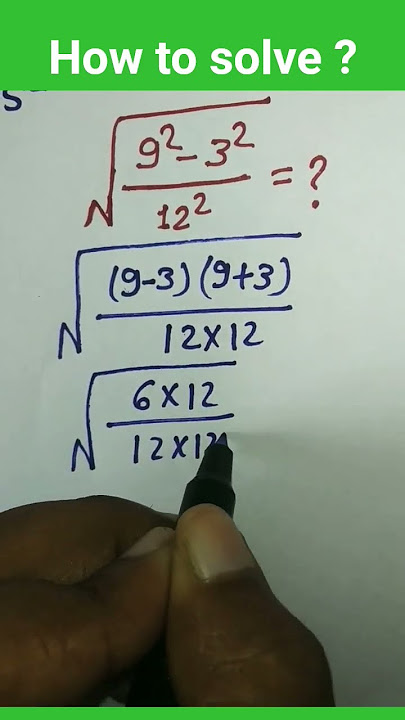 How to solve ?
√((9²-3²)/12²) = ?
√(((9-3)(9+3))/(12×12))
√((6×12)/(12×12))